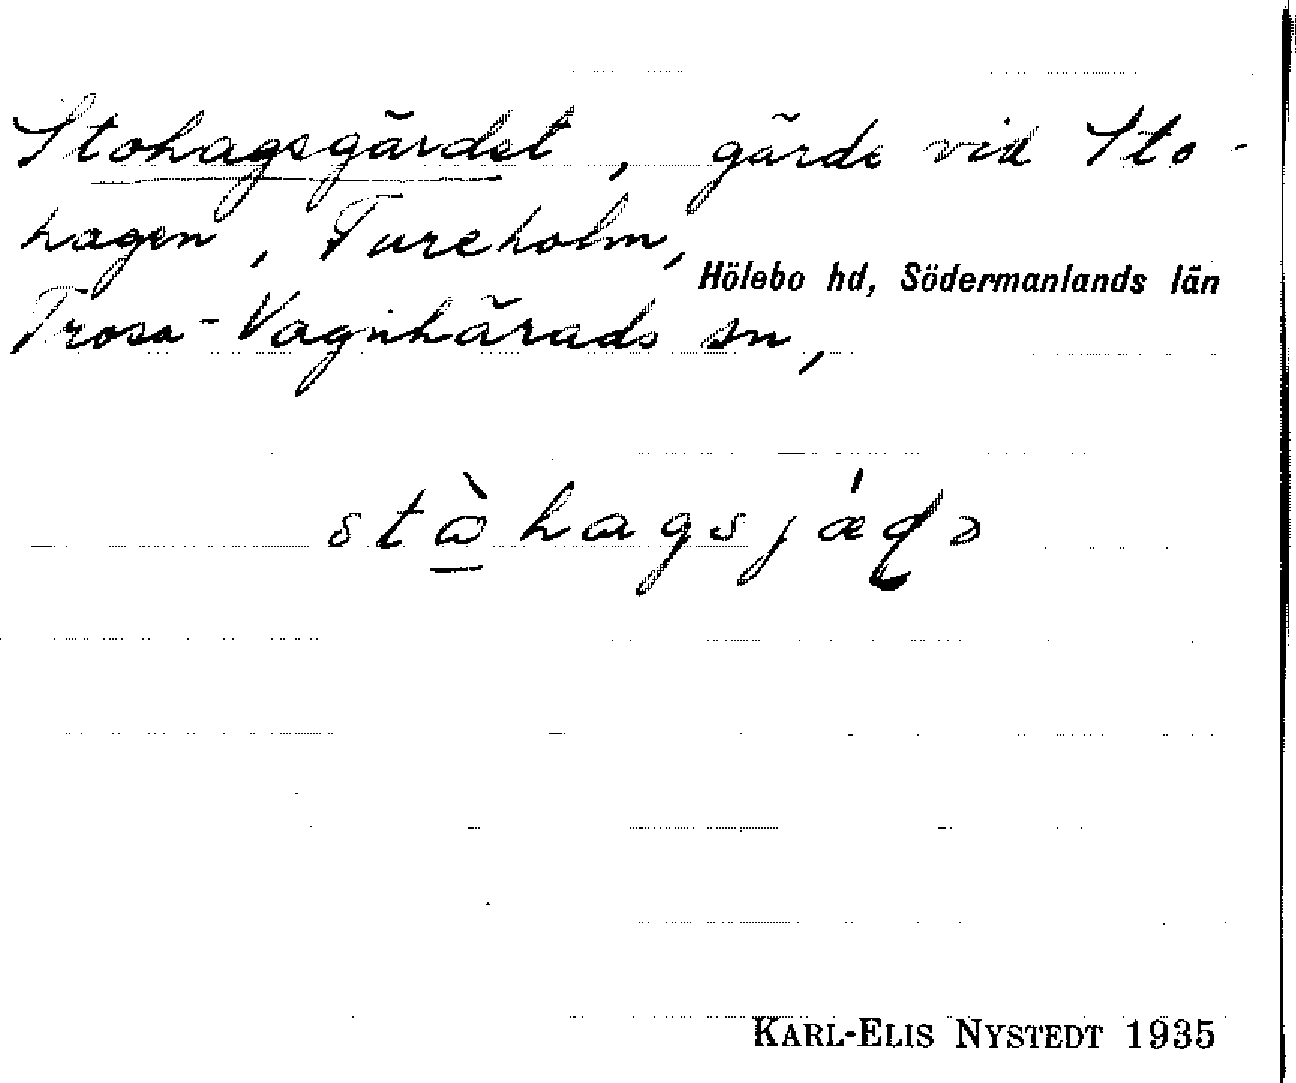 Stohagsgärdet, gärde vid Sto-
hagen, Tureholm,
Hölebo hd, Södermanlands län
Trosa-Vagnhärads sn,
KARL-ELIS NYSTEDT 1935